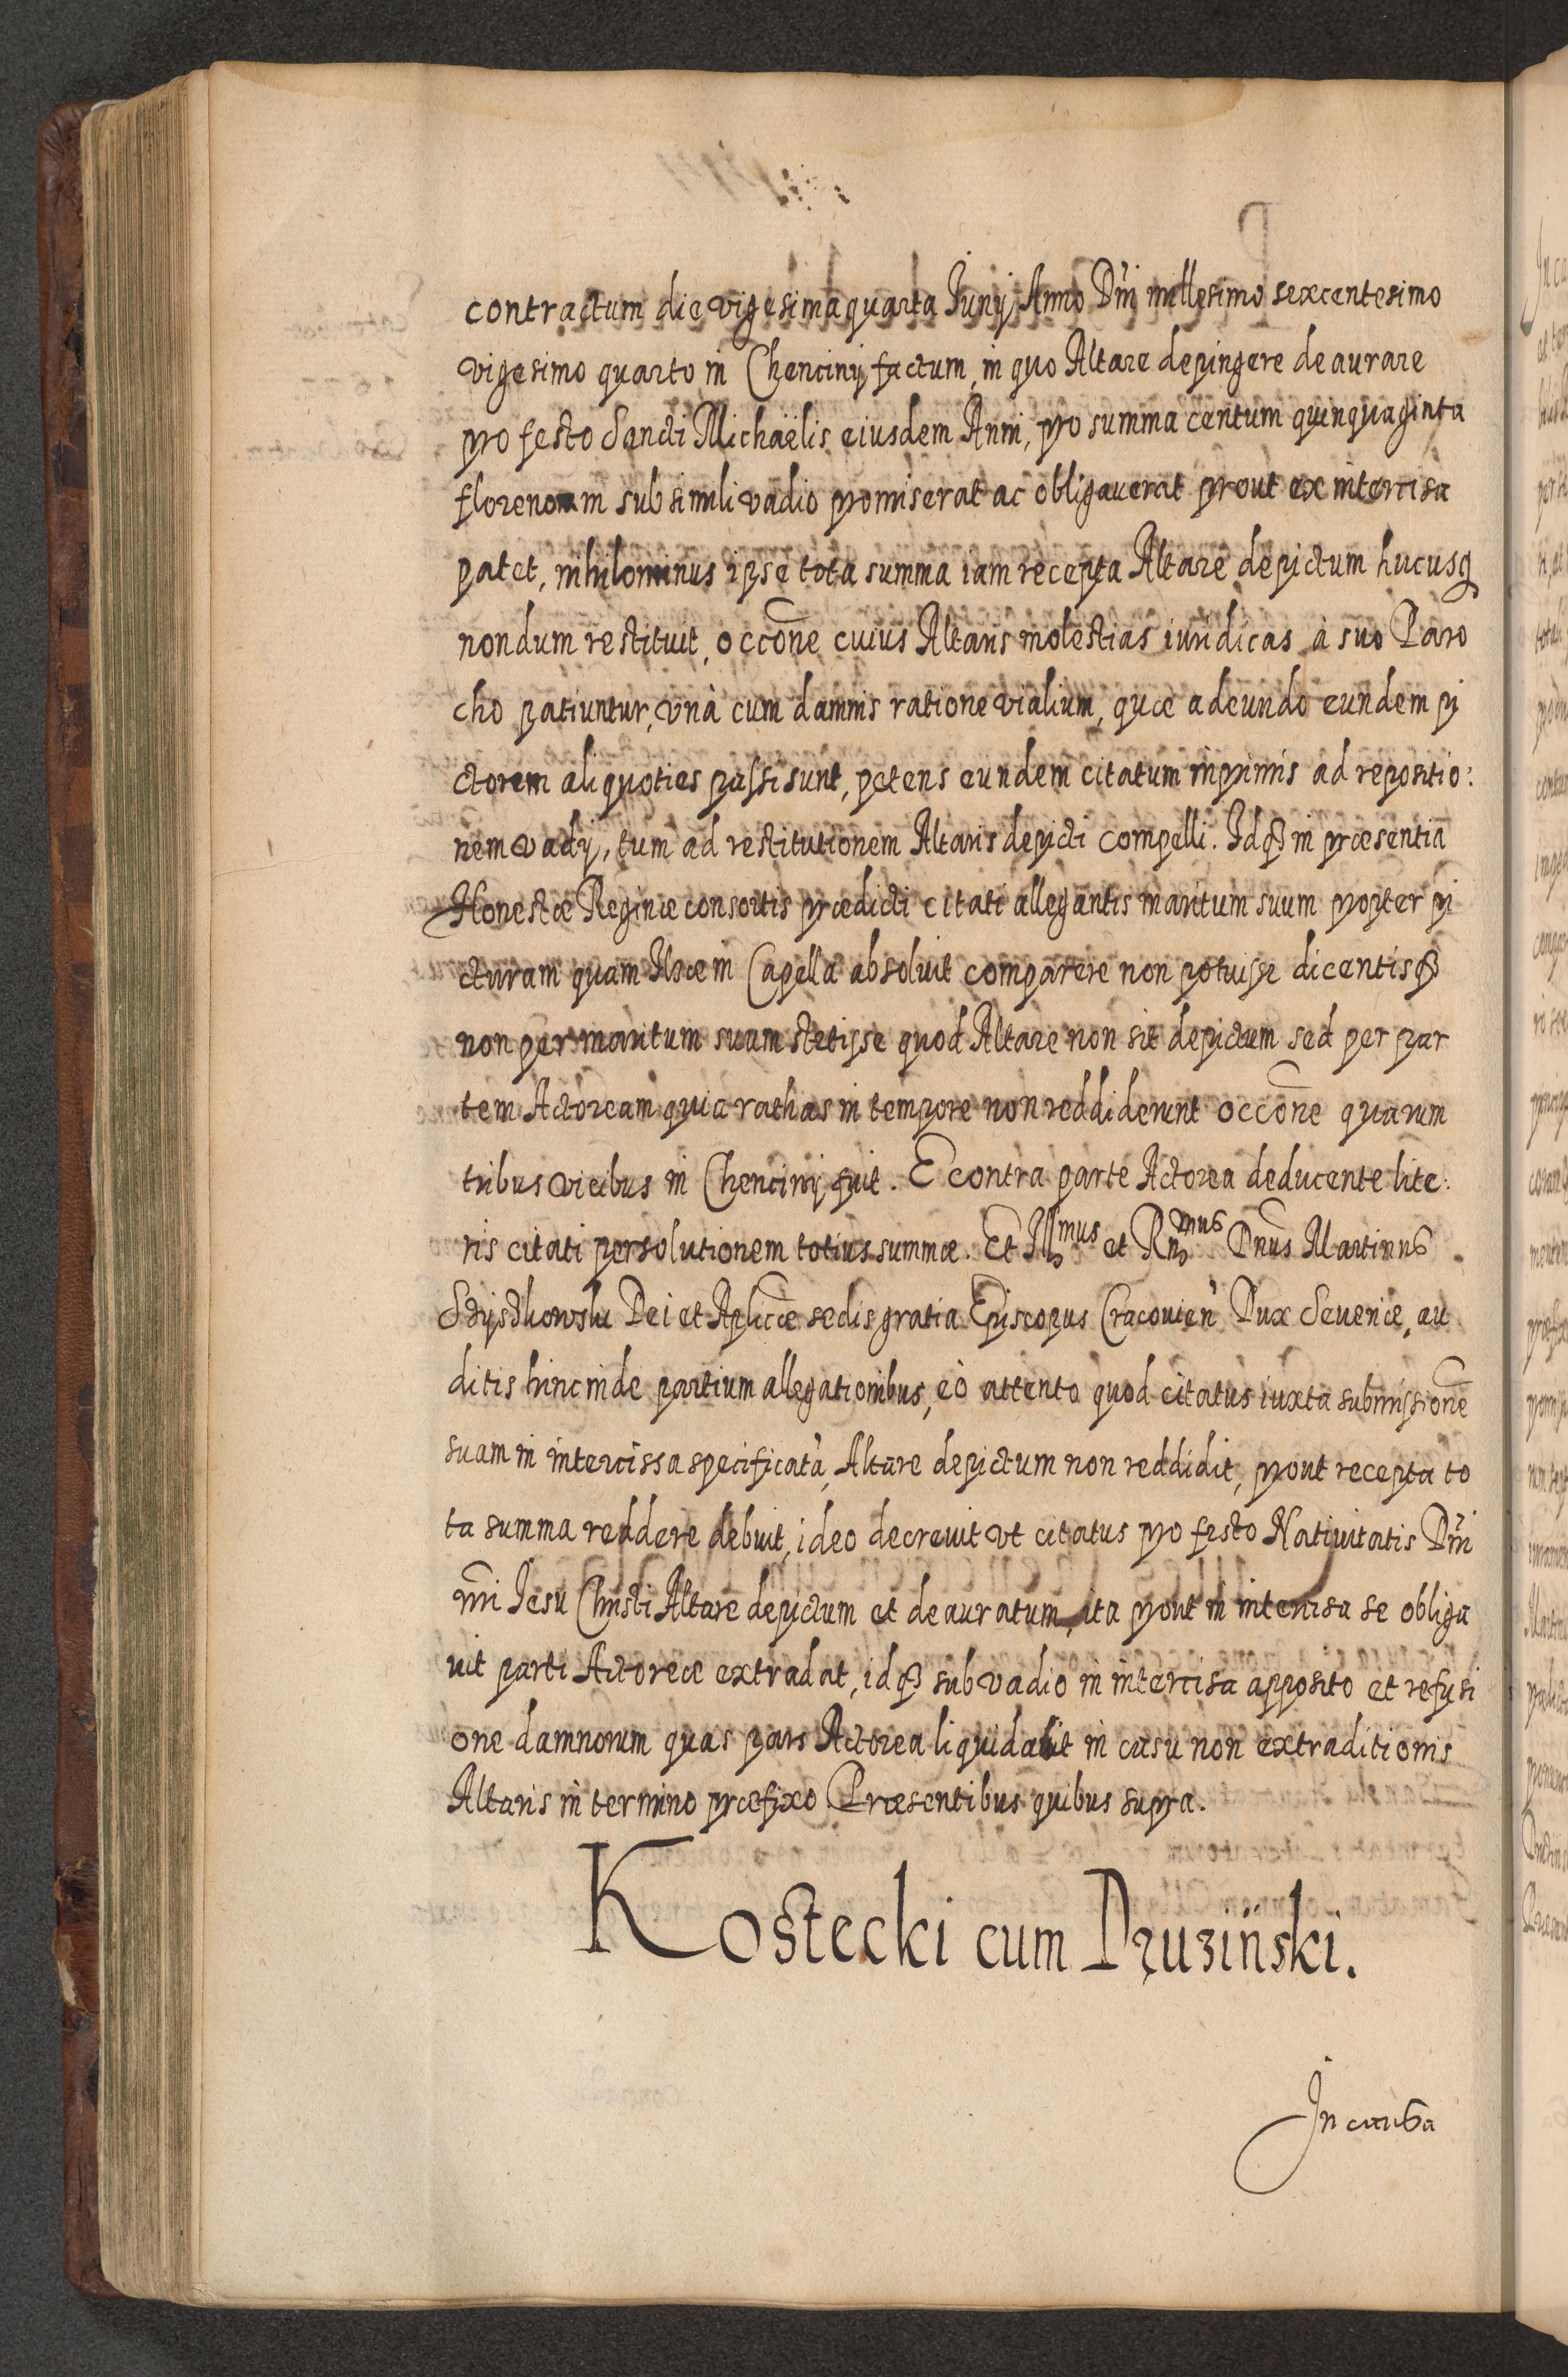 contractum die vigesima quarta Iunij Anno Dni millesimo sexcentesimo
vigesimo quarto in Chencinij factum, in quo Altare depingere deaurare
pro festo Sancti Michaëlis eiusdem Anni, pro summa centum quinquaginta
florenorum sub simili vadio promiserat ac obligauerat prout ex intercisa
patet, nihilominus ipse tota summa iam recepta Altare depictum hucusq
nondum restituit, occõne cuius Altaris molestias iuridicas à suo Paro
cho patiuntur, vnà cum damnis ratione vialium, quæ adeundo eundem pi
ctorem aliquoties passi sunt, petens eundem citatum inprimis ad repositio:
nem vadij, tum ad restitutionem Altaris depicti compelli. Idq3 in præsentia
Honestæ Reginæ consortis prædicti citati allegantis maritum suum propter pi
cturam quam in Capella absoluit comparere non potuisse dicentisq3
non per maritum suum stetisse quod Altare non sit depictum sed per par
tem Actoream quia rathas in tempore non reddiderunt occõne quarum
tribus vicibus in Chencinij fuit. E contra parte Actorea deducente lite:
ris citati persolutionem totius summæ. Et Illmus et Rndmus Dnus Martinus
Szyszkowski Dei et Aplicæ sedis gratia Episcopus Cracouien Dux Seueriæ, au
ditis hinc inde partium allegationibus, eò attento quod citatus iuxta submissionẽ
suam in intercissa specificatà, Altare depictum non reddidit, prout recepta to
ta summa reddere debuit, ideo decreuit vt citatus pro festo Natiuitatis Dni
nri Iesu Christi Altare depictum et deauratum, ita prout in intercisa se obliga
uit parti Actoreæ extradat, idq3 sub vadio in intercisa apposito et refusi
one damnorum quas pars Actorea liquidabit in casu non extraditionis
Altaris in termino præfixo. Præsentibus quibus supra.
Kostecki cum Druziński.
In causa